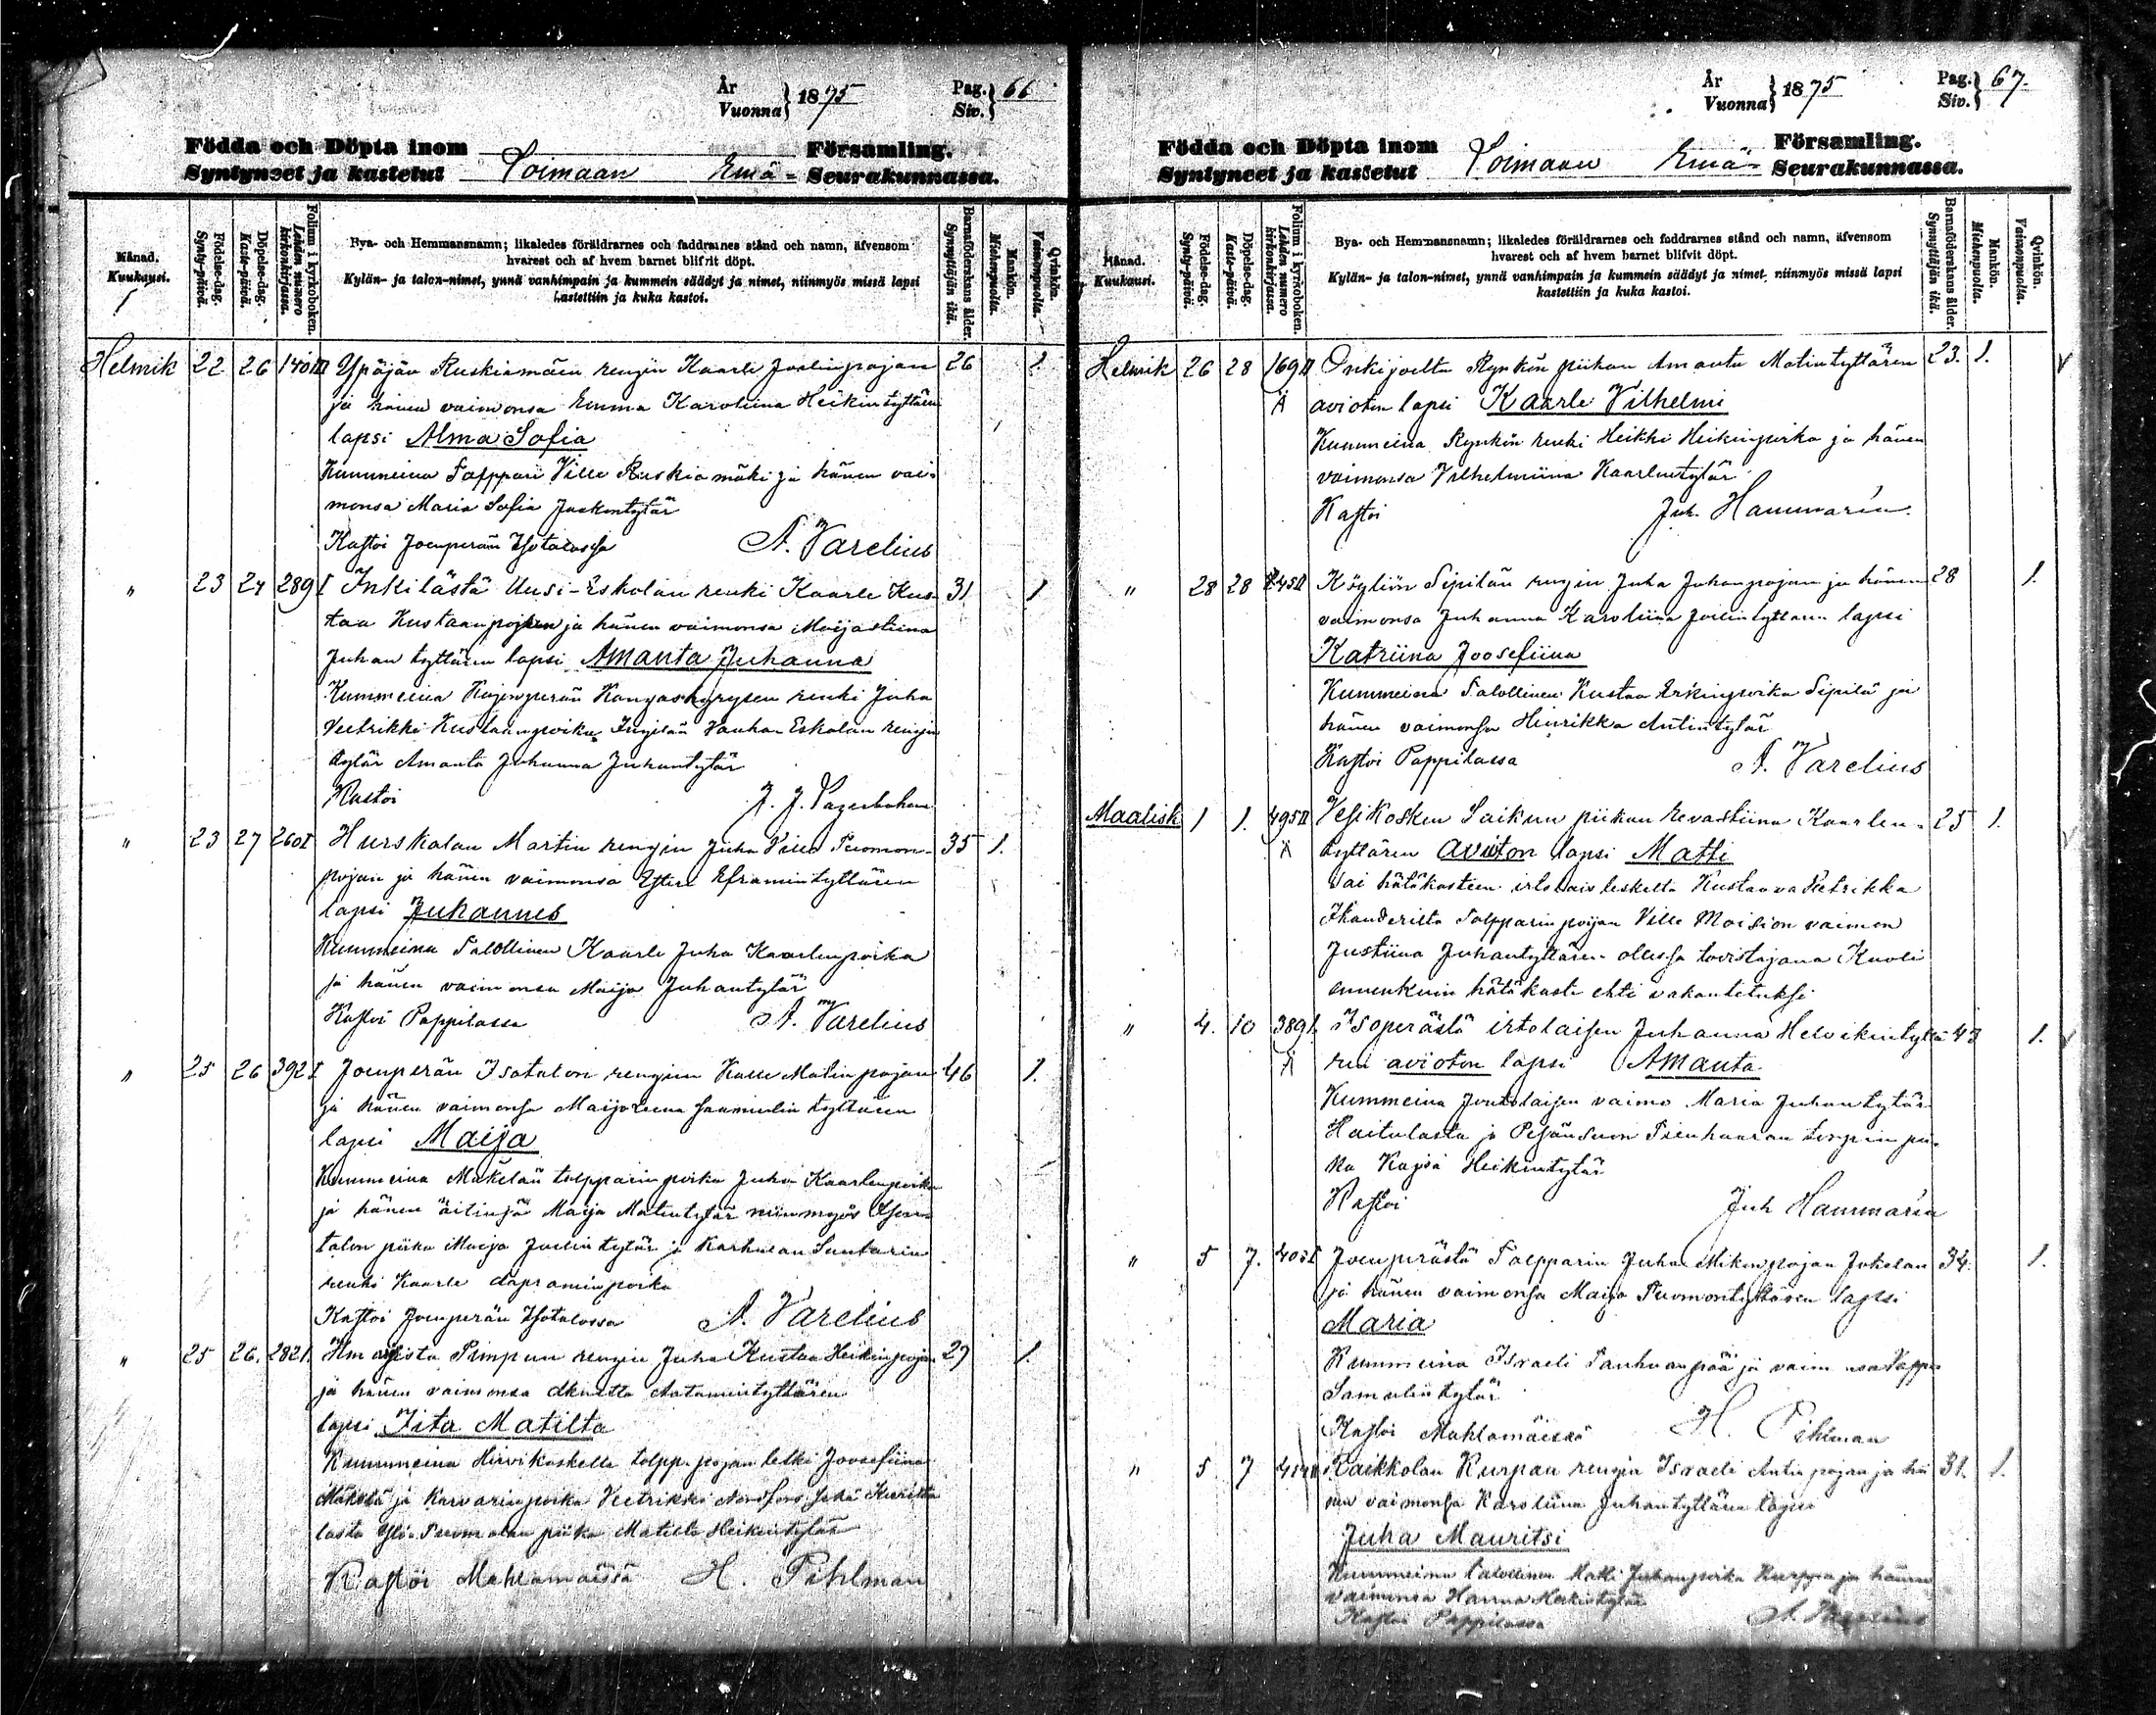 År
Vuonna } 1875
Pag.
Siv. } 66
Födda och Döpta inom Församling.
Syntyneet ja kastetut Loimaan Emä- Seurakunnassa.
Månad.
Kuukausi.
Födelse-dag.
Synty-päivä.
Döpelse-dag.
Kaste-päivä.
Folium i kyrkoboken.
Lehden numero kirkonkirjassa.
Bya- och Hemmansnamn; likaledes föräldrarnes och faddrarnes stånd och namn, äfvensom
hvarest och af hvem barnet blifvit döpt.
Kylän- ja talon-nimet, ynnä vanhimpain ja kummein säädyt ja nimet, niinmyös missä lapsi
kastettiin ja kuka kastoi.
Barnaföderskans ålder.
Synnyttäjän ikä.
Mankön.
Miehenpuolta.
Qvinkön.
Vaimonpuolta.
Helmik 22 26 140III Ypäjän Ruskiamäen rengin Kaarle Joelinpojan 26 1
ja hänen vaimonsa Emma Karoliina Heikintyttären
lapsi Alma Sofia
Kummeina Ville Ruskiamäki ja hänen vai-
monsa Maria Sofia
Kastoi Joenperän Isotalossa A. Varelius
" 23 27 289I Inkilästä Uusi-Eskolan renki Kaarle Kus- 31. 1
taa Kustaanpojan ja hänen vaimonsa Maijastiina
Juhantyttären lapsi Amanta Juhanna
Kummeina renki Juha
Vetrikki Kustaanpoika Vanhan Eskolan rengin
tytär Amanta Juhanna Juhantytär
Kastoi J. J.
" 23 27 260I Hurskalan Martin rengin Juha Ville Tuomon- 35 1.
pojan ja hänen vaimonsa Eframintyttären
lapsi Juhannes
Kummeina Talollinen Kaarle Juha Kaarlenpoika
ja hänen vaimonsa Maija Juhantytär
Kastoi Pappilassa A. Varelius
" 25 26 392I Joenperän Isotalon rengin Kalle Matinpojan 46 1.
ja hänen vaimonsa Maijaleena tyttären
lapsi Maija
Kummeina Mäkelän tolpparin poika Juha Kaarlenpoika
ja hänen äitinsä Maija Matintytär niinmyös Ison-
talon piika Maija Joelintytär ja
renki Kaarle
Kastoi Joenperän Isotalossa A. Varelius
" 25 26. 282I. Pimpun rengin Juha Kustaa Heikinpojan 29 1.
ja hänen vaimonsa Aatamintyttären
lapsi Iita Matilta
Kummeina Hirvikoskelta tolpp. pojan leski Joosefiina
Mäkelä ja poika Vetrikki
piika Matilta Heikintytär
Kastoi Mahlamäissä H. Pihlman
År
Vuonna } 1875
Pag.
Siv. } 67.
Födda och Döpta inom Församling.
Syntyneet ja kastetut Loimaan Emä- Seurakunnassa.
Månad.
Kuukausi.
Födelse-dag.
Synty-päivä.
Döpelse-dag.
Kaste-päivä.
Folium i kyrkoboken.
Lehden numero kirkonkirjassa.
Bya- och Hemmansnamn; likaledes föräldrarnes och faddrarnes stånd och namn, äfvensom
hvarest och af hvem barnet blifvit döpt.
Kylän- ja talon-nimet, ynnä vanhimpain ja kummein säädyt ja nimet, niinmyös missä lapsi
kastettiin ja kuka kastoi.
Barnaföderskans ålder.
Synnyttäjän ikä.
Mankön.
Miehenpuolta.
Qvinkön.
Vaimonpuolta.
Helmik 26 28 169II Onkijoelta Rynkön piikan Amanta Matintyttären 23. 1.
Ä avioton lapsi Kaarle Vilhelmi
Kummeina Rynkön renki Heikki Heikinpoika ja hänen
vaimonsa Vilhelmiina Kaarlentytär
Kastoi Joh. Hammarén.
" 28 28 245II Köyliön Sipilän rengin Juha Juhanpojan ja hänen 28 1.
vaimonsa Juhanna Karoliina Joelintyttären lapsi
Katriina Joosefiina
Kummeina Talollinen Kustaa Erkinpoika Sipilä ja
hänen vaimonsa Hinrikka Antintytär
Kastoi Pappilassa A. Varelius
Maalisk 1 1. 495II Vesikosken piikan Evastiina Kaarlen- 25 1.
Ä tyttären avioton lapsi Matti
sai hätäkasteen Kustaava
pojan Ville vaimon
Justiina Juhantyttären ollessa todistajana Kuoli
ennenkuin hätäkaste ehti vakautetuksi
" 4. 10 389I. Isoperästä irtolaisen Juhanna Heikintyttä- 43 1.
Ä ren avioton lapsi Amanta
Kummeina vaimo Maria Juhantytär
Haitulasta ja torpin pii-
ka Kajsa Heikintytär
Kastoi Joh Hammarén
" 5 7. 403I Joenperästä Tolpparin Juha Mikinpojan Jokelan 34. 1.
ja hänen vaimonsa Maija Tuomontyttären lapsi
Maria
Kummeina Israeli Tanhuanpää ja vaimonsa Vappu
Samulintytär
Kastoi Mahlamäissä H. Pihlman
" 5 7 Raikkolan Kurpan rengin Israeli Antinpojan ja hä- 31. 1.
nen vaimonsa Karoliina Juhantyttären lapsi
Juha Mauritsi
Kummeina talollinen Matti Juhanpoika Kurppa ja hänen
vaimonsa Hanna Heikintytär
Kastoi Pappilassa A. Varelius